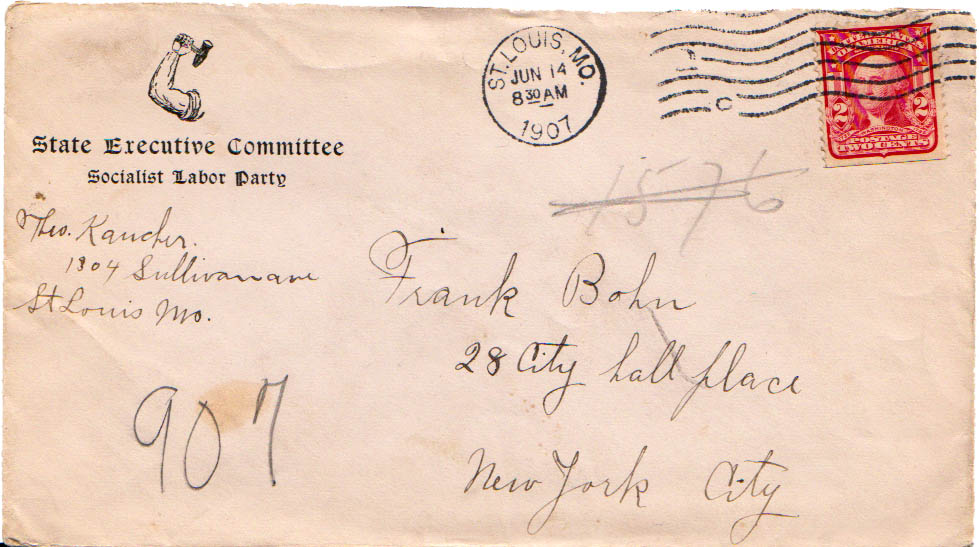 State Executive Committee
Socialist Labor Party
Theo. Kaucher.
1804 Sullivan ave
St Louis Mo.
ST. LOUIS, MO.
JUN 14
8 30 AM
1907
UNITED STATES
OF AMERICA
2 WASHINGTON 2
POSTAGE
TWO CENTS
1576
Frank Bohn
28 City hall place
New York City
907